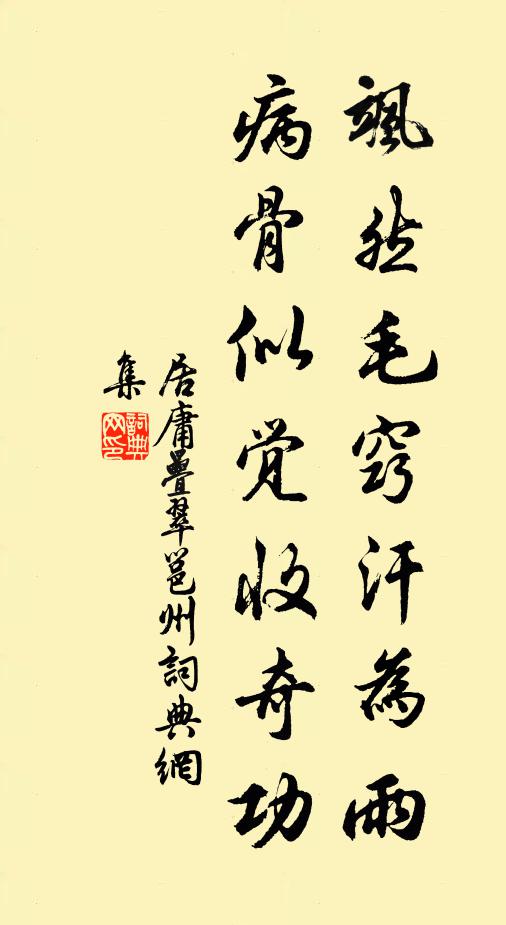 飒然毛窍汗為雨
病骨似觉收奇功
居庸疊翠邕州詞典網
集
詞典
网印